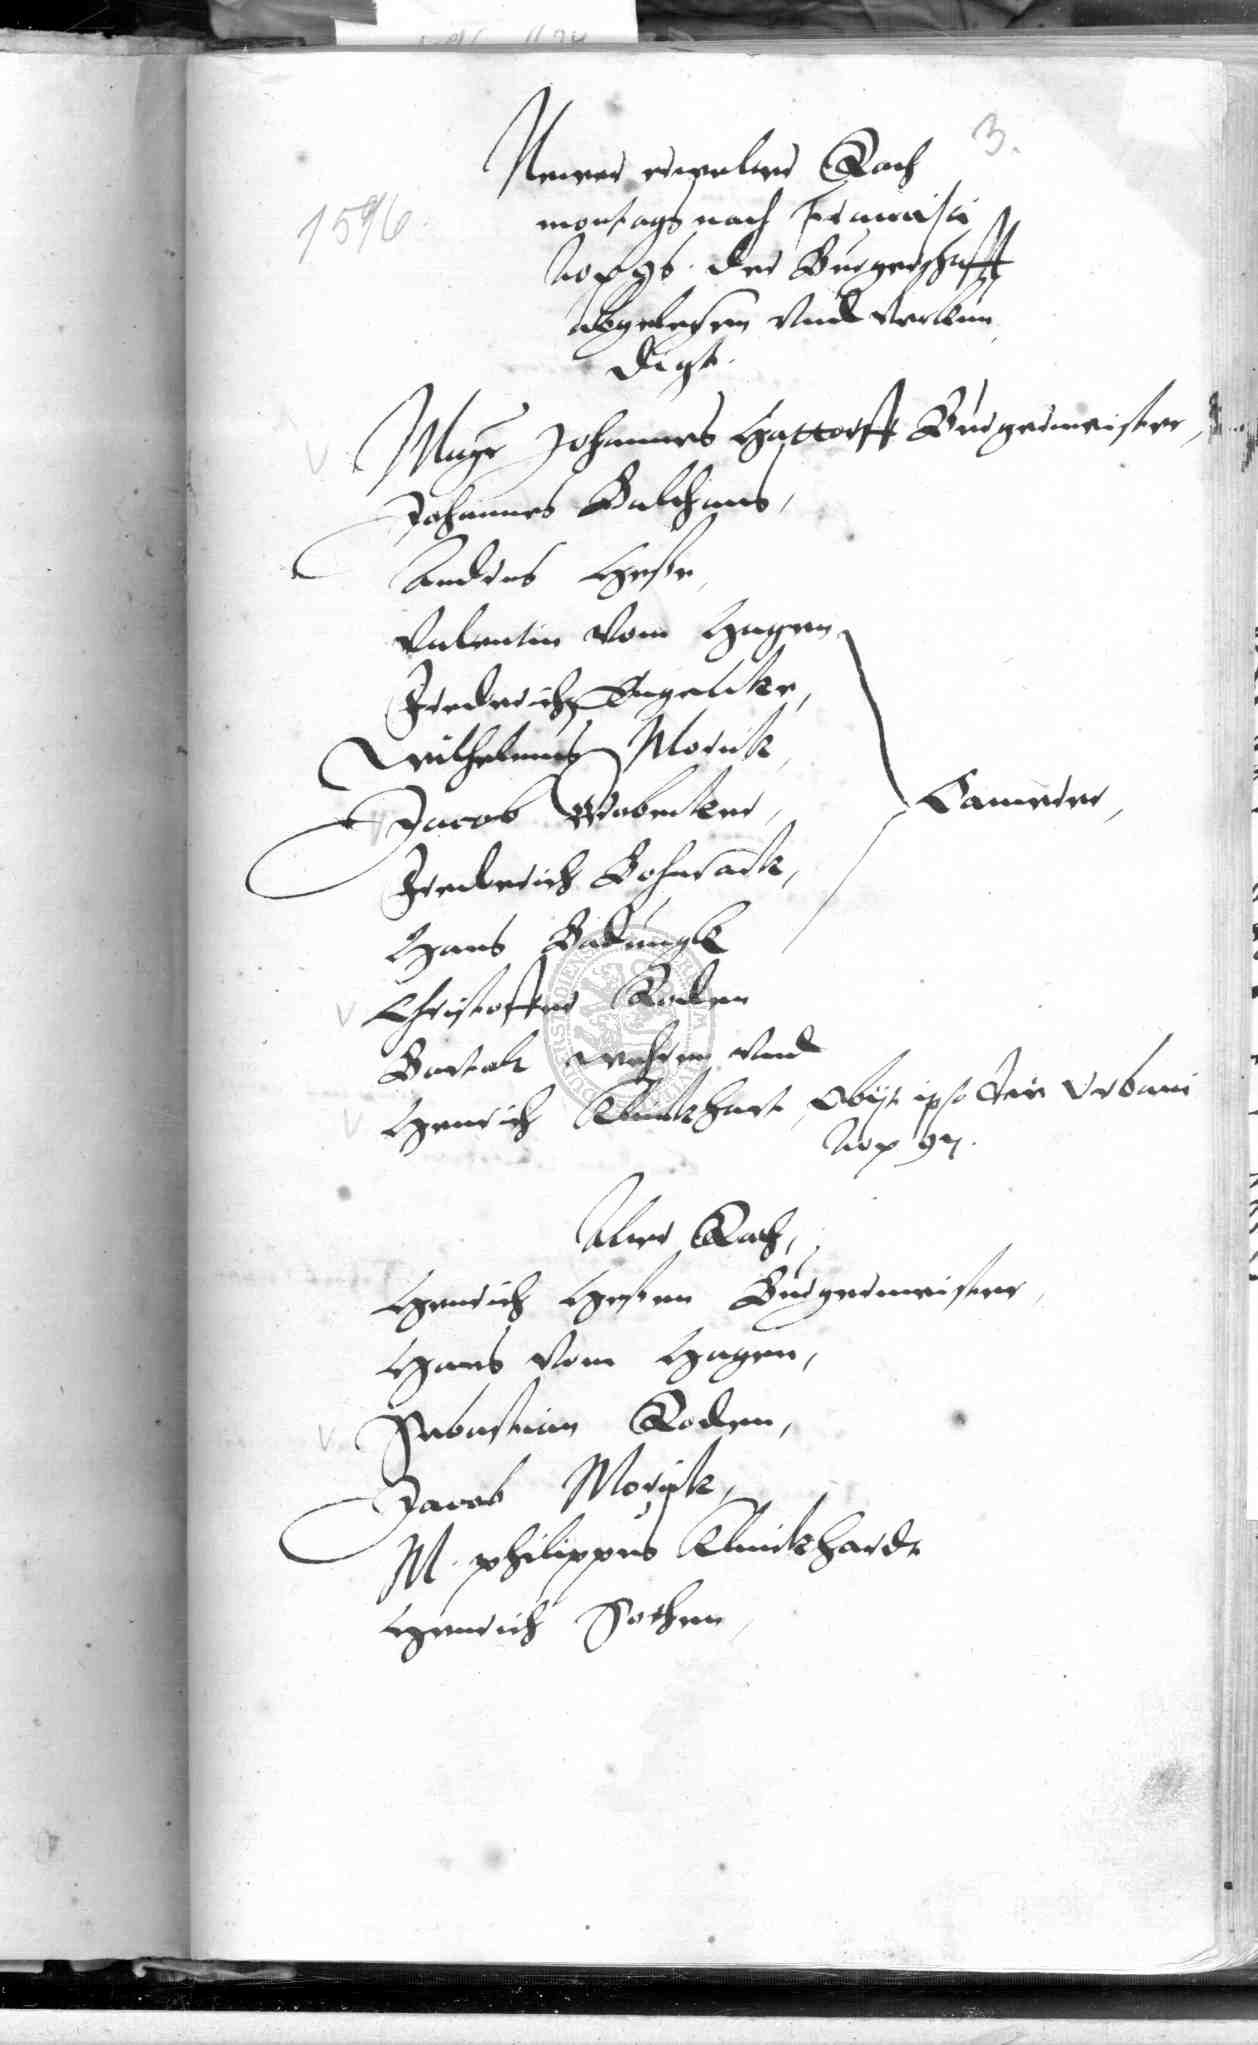 3.
Newer erwelter Rath
1596
montags nach Francisci
Ao p 96. der Burgerschafft
abgelesen vnd verkun,
digt.
Magr Johannes Hattorff Burgermeister,
Johannes Balthaus,
Andres Hesse,
Valentin vom Hagen
Frederich Engelke,
Wilhelmus Morick,
Jacob Wobecker,
Camerer,
Frederich Bohnsack,
Hans Badungk
Christoffer Roden
Bartolt Wehren vnd
Henrich Klinckhart, Obijt ipso die Urbani
Ao p 97.
Alter Rath,
Henrich Hessen Burgermeister,
Hans vom Hagen,
Sebastian Roden,
Jacob Morick,
M. Philippus Klinckhardt
Henrich Sothen,